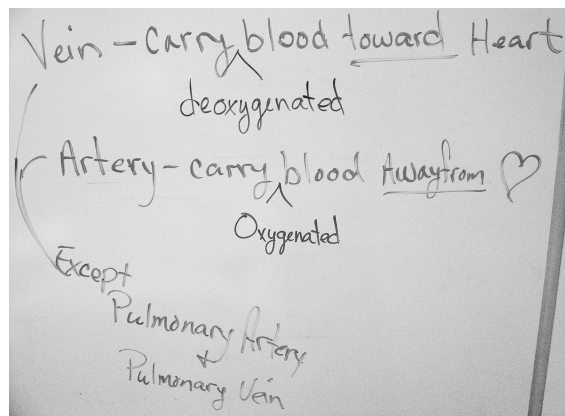 Vein - carry blood toward Heart
deoxygenated
Artery - carry blood Away from ♡
Oxygenated
Except
Pulmonary Artery
+
Pulmonary Vein